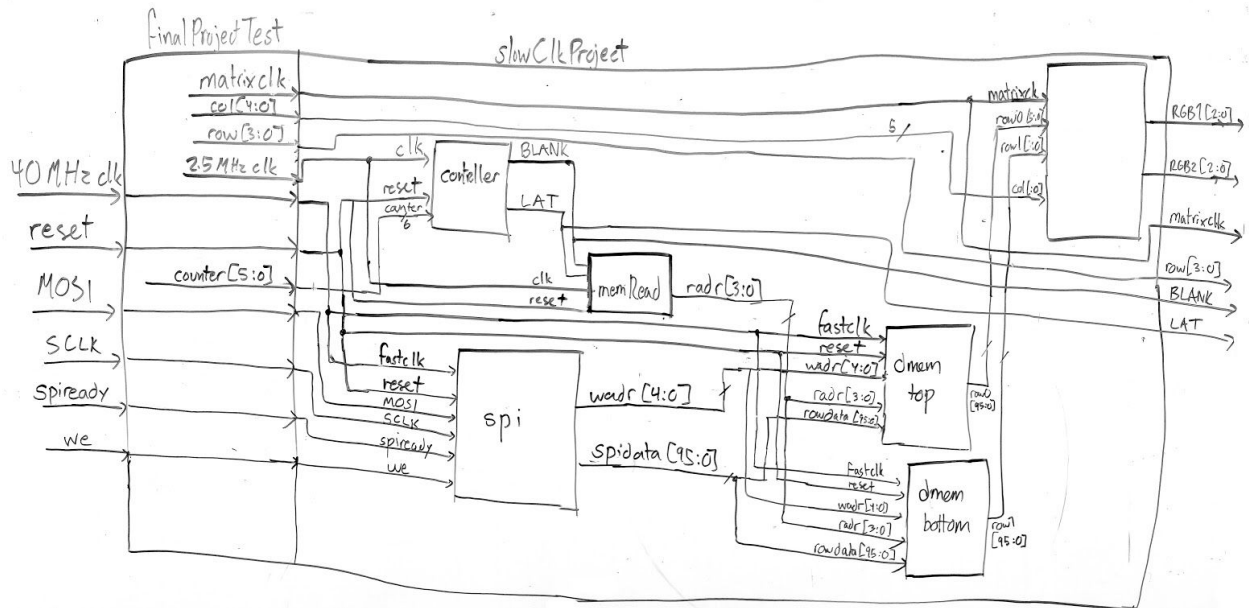 finalProjectTest
slowClkProject
matrixclk
col[4:0]
row[3:0]
2.5MHz clk
40 MHz clk
reset
counter[5:0]
MOSI
SCLK
spiready
we
clk
reset
counter
6
conteller
BLANK
LAT
clk
reset
memRead
radr[3:0]
fastclk
reset
MOSI
SCLK
spiready
we
spi
wadr[4:0]
spidata[95:0]
fastclk
reset
wadr[4:0]
radr[3:0]
rowdata[95:0]
dmem
top
row0
[95:0]
fastclk
reset
wadr[4:0]
radr[3:0]
rowdata[95:0]
dmem
bottom
row1
[95:0]
matrixclk
col[:0]
RGB1[2:0]
RGB2[2:0]
matrixclk
row[3:0]
BLANK
LAT